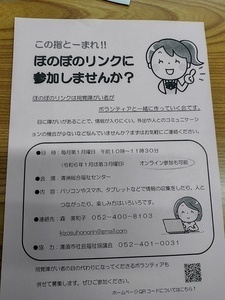 この指とーまれ!!
ほのぼのリンクに
参加しませんか?
ほのぼのリンクは視覚障がい者が
ボランティアと一緒に作っていく会です。
目に障がいがあることで、情報が入りにくい、外出や人とのコミュニケーションの機会が少ないなど悩んでいませんか?まずはお気軽にご連絡ください。
●日 時:毎月第1月曜日 午前10時~11時30分
(令和6年1月は第3月曜日) オンライン参加も可能
●会 場:清洲総合福祉センター
●内 容:パソコンやスマホ、タブレットなどで情報の収集をしたり、人と
つながったり、楽しみ方はいろいろです。
●連絡先:森 美和子 052-400-8103
●協 力:清須市社会福祉協議会 052-401-0031
視覚障がい者の目の代わりになってくださるボランティアも
併せて募集します。ぜひご参加ください。
ホームページQRコードについてはこちら!